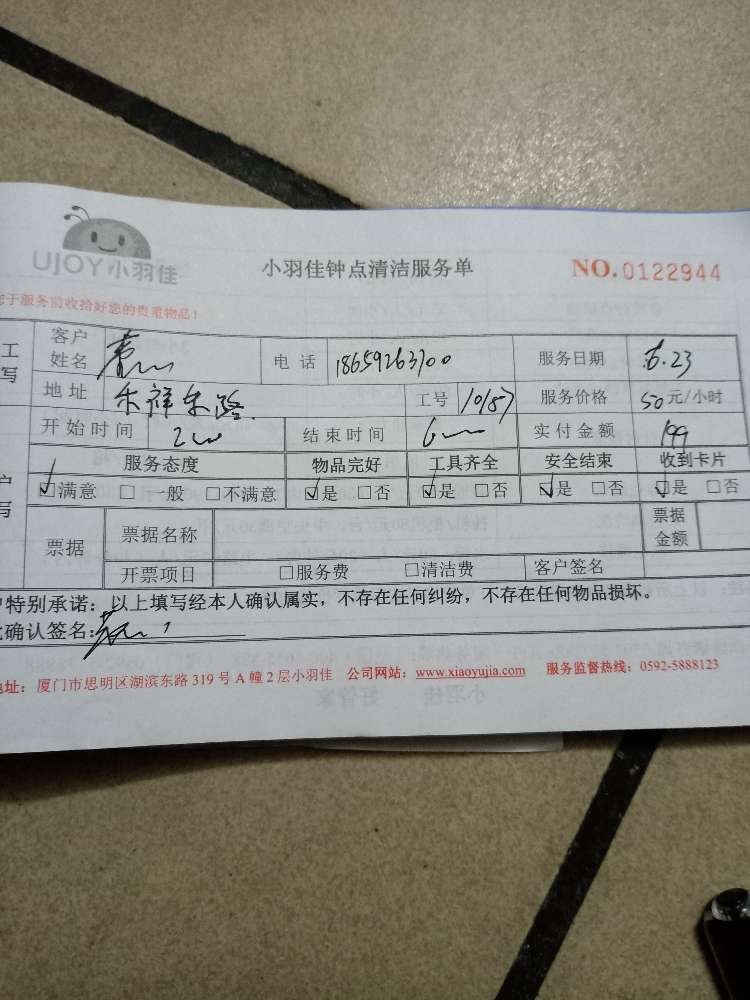 UJOY小羽佳
小羽佳钟点清洁服务单
NO.0122944
于服务前收拾好您的贵重物品!
工
写
客户
姓名
电 话 18659263700
服务日期 6.23
地址 乐祥东路.
工号 10187
服务价格 50元/小时
开始时间 2
结束时间 6
实付金额 199
户
写
服务态度 物品完好 工具齐全 安全结束 收到卡片
☑满意 □ 一般 □不满意 ☑是 □否 ☑是 □否 ☑是 □否 ☑是 □否
票据 票据名称 票据
金额
开票项目 □服务费 □清洁费 客户签名
户特别承诺:以上填写经本人确认属实,不存在任何纠纷,不存在任何物品损坏。
此确认签名:
地址:厦门市思明区湖滨东路 319 号 A 幢 2 层小羽佳 公司网站:www.xiaoyujia.com 服务监督热线:0592-5888123